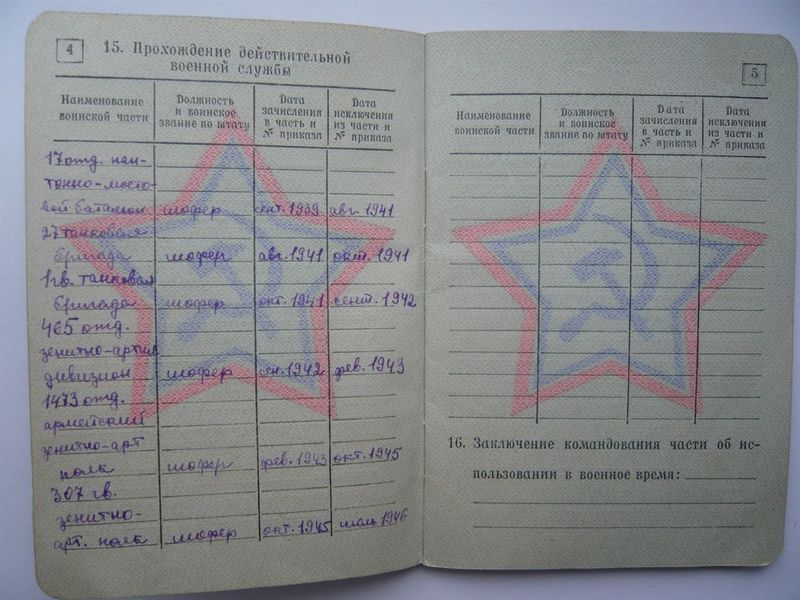 4
15. Прохождение действительной
военной службы
Наименование воинской части | Должность и воинское звание по штату | Дата зачисления в часть и № приказа | Дата исключения из части и № приказа
17 отд. пон-
тонно-мосто-
вой батальон шофер сент. 1939 авг. 1941
27 танковая
бригада шофер авг. 1941 окт. 1941
1 гв. танковая
бригада шофер окт. 1941 сент. 1942
465 отд.
зенитно-артил
дивизион шофер сен. 1942 фев. 1943
1473 отд.
армейский
зенитно-арт
полк шофер фев. 1943 окт. 1945
307 гв.
зенитно-
арт. полк шофер окт. 1945 июль 1946
5
Наименование воинской части | Должность и воинское звание по штату | Дата зачисления в часть и № приказа | Дата исключения из части и № приказа
16. Заключение командования части об ис-
пользовании в военное время: